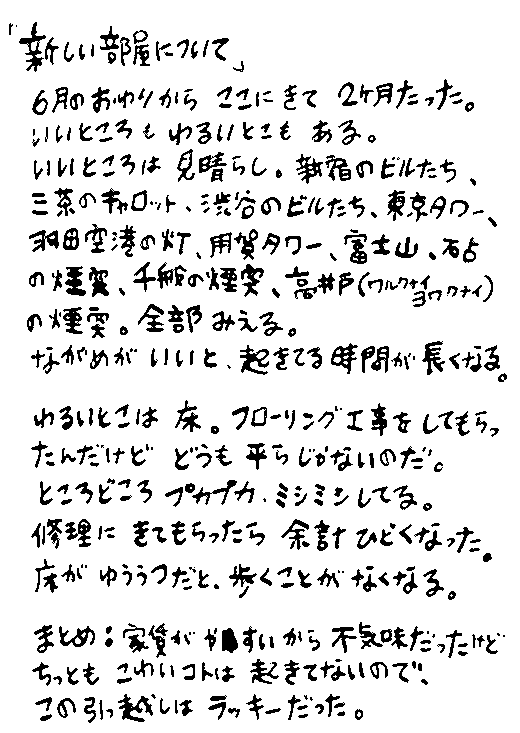 「新しい部屋について」
6月のおわりから ここにきて 2ヶ月たった。
いいところも わるいとこも ある。
いいところは 見晴らし。新宿のビルたち、
三茶のキャロット、渋谷のビルたち、東京タワー、
羽田空港の灯、用賀タワー、富士山、砧
の煙突、千船の煙突、高井戸(ワルクナイヨワクナイ)
の煙突。全部 みえる。
ながめが いいと、起きてる時間が 長くなる。
わるいとこは 床。フローリング工事を してもらっ
たんだけど どうも 平らじゃないのだ。
ところどころ プカプカ・ミシミシしてる。
修理に きてもらったら 余計 ひどくなった。
床が ゆううつだと、歩くことが なくなる。
まとめ:家賃が やすいから 不気味だったけど
ちっとも こわいコトは 起きてないので、
この引っ越しは ラッキーだった。